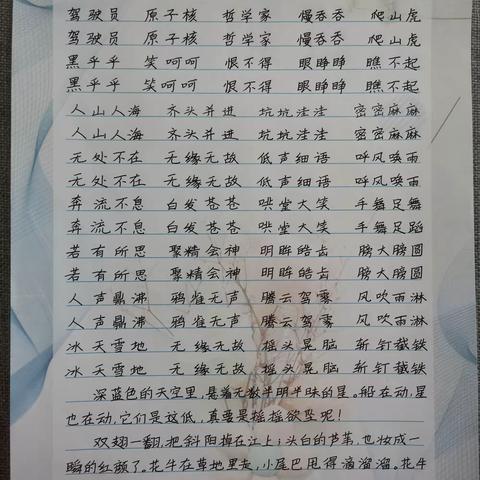 驾驶员 原子核 哲学家 慢吞吞 爬山虎
驾驶员 原子核 哲学家 慢吞吞 爬山虎
黑乎乎 笑呵呵 恨不得 眼睁睁 瞧不起
黑乎乎 笑呵呵 恨不得 眼睁睁 瞧不起
人山人海 齐头并进 坑坑洼洼 密密麻麻
人山人海 齐头并进 坑坑洼洼 密密麻麻
无处不在 无缘无故 低声细语 呼风唤雨
无处不在 无缘无故 低声细语 呼风唤雨
奔流不息 白发苍苍 哄堂大笑 手舞足舞
奔流不息 白发苍苍 哄堂大笑 手舞足蹈
若有所思 聚精会神 明眸皓齿 膀大膀圆
若有所思 聚精会神 明眸皓齿 膀大膀圆
人声鼎沸 鸦雀无声 腾云驾雾 风吹雨淋
人声鼎沸 鸦雀无声 腾云驾雾 风吹雨淋
冰天雪地 无缘无故 摇头晃脑 斩钉截铁
冰天雪地 无缘无故 摇头晃脑 斩钉截铁
深蓝色的天空里,悬着无数半明半昧的星。船在动,星
也在动,它们是这低,真要是摇摇欲坠呢!
双翅一翻,把斜阳掉在江上;头白的芦苇,也妆成一
瞬的红颜了。花牛在草地里走,小尾巴甩得滴溜溜。花牛